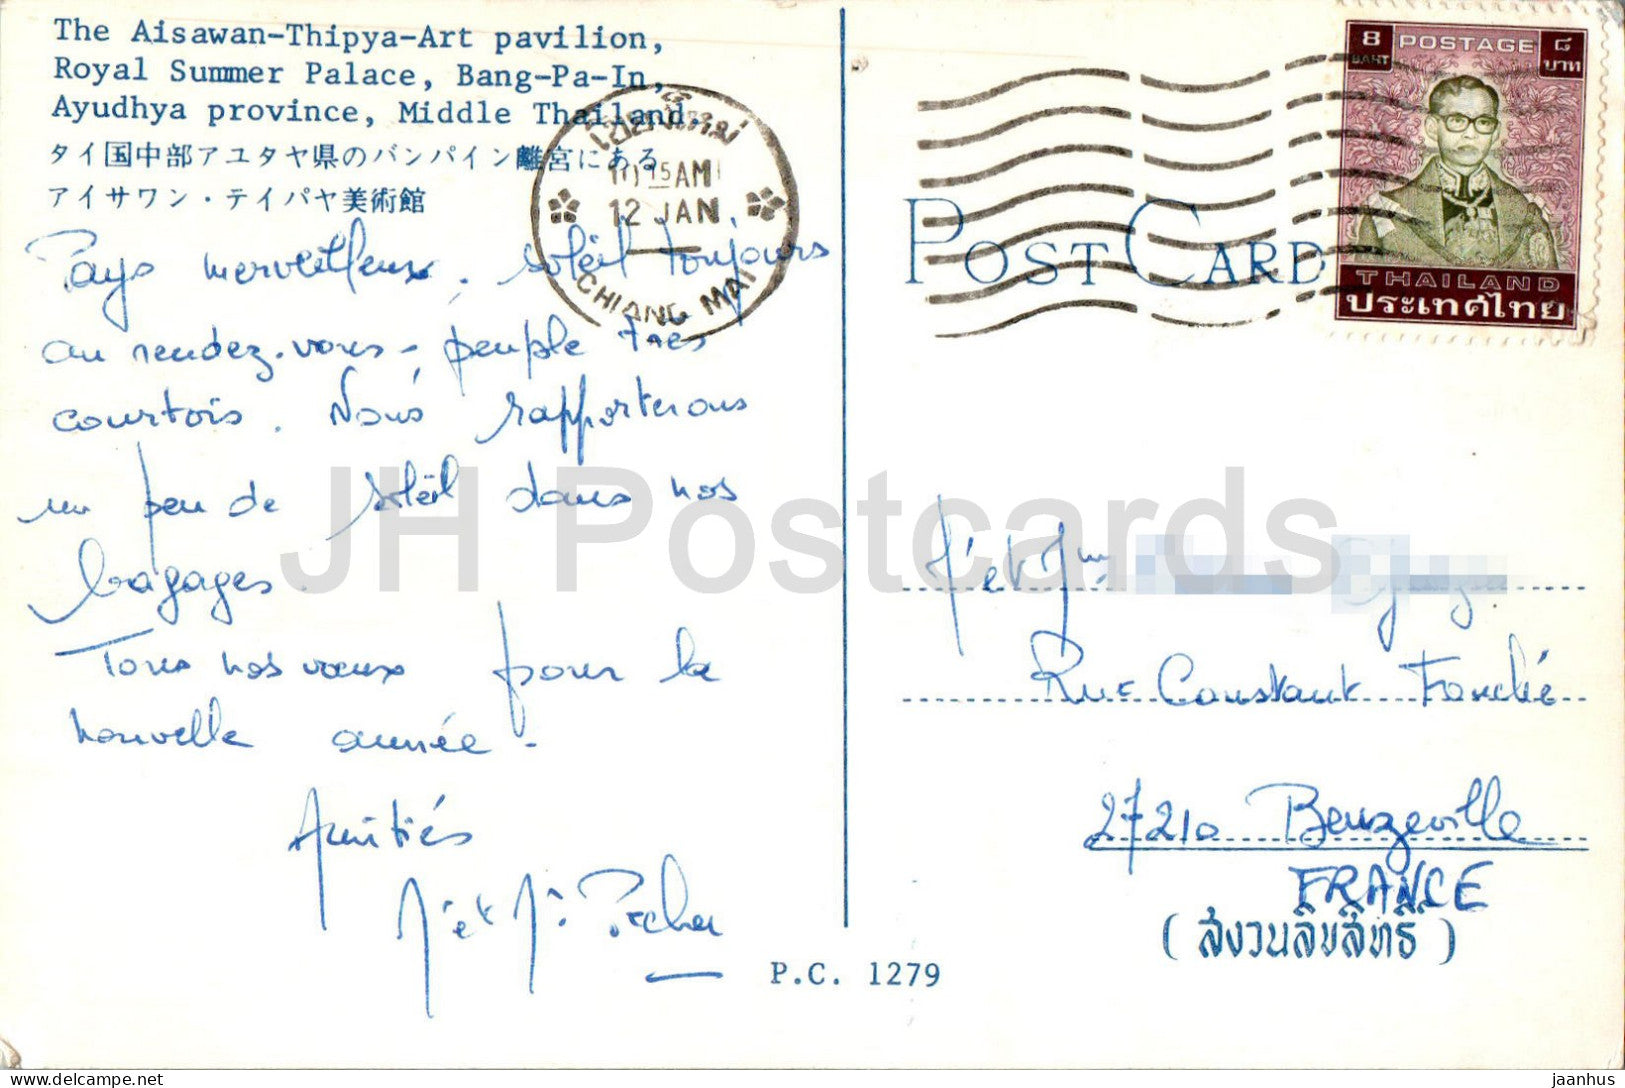 The Aisawan-Thipya-Art pavilion,
Royal Summer Palace, Bang-Pa-In,
Ayudhya province, Middle Thailand.
タイ国中部アユタヤ県のバンパイン離宮にある
アイサワン・テイパヤ美術館
เชียงใหม่
AM
12 JAN
CHIANG MAI
8 POSTAGE ๘
BAHT บาท
THAILAND
ประเทศไทย
POST CARD
Pays merveilleux, soleil toujours
au rendez-vous - peuple très
courtois. Nous rapporterons
un peu de soleil dans nos
bagages
Tous nos vœux pour la
nouvelle année -
Amitiés
Rue Constant Fouché
27210 Beuzeville
FRANCE
(สงวนลิขสิทธิ์)
P.C. 1279
JH Postcards
delcampe.net
jaanhus